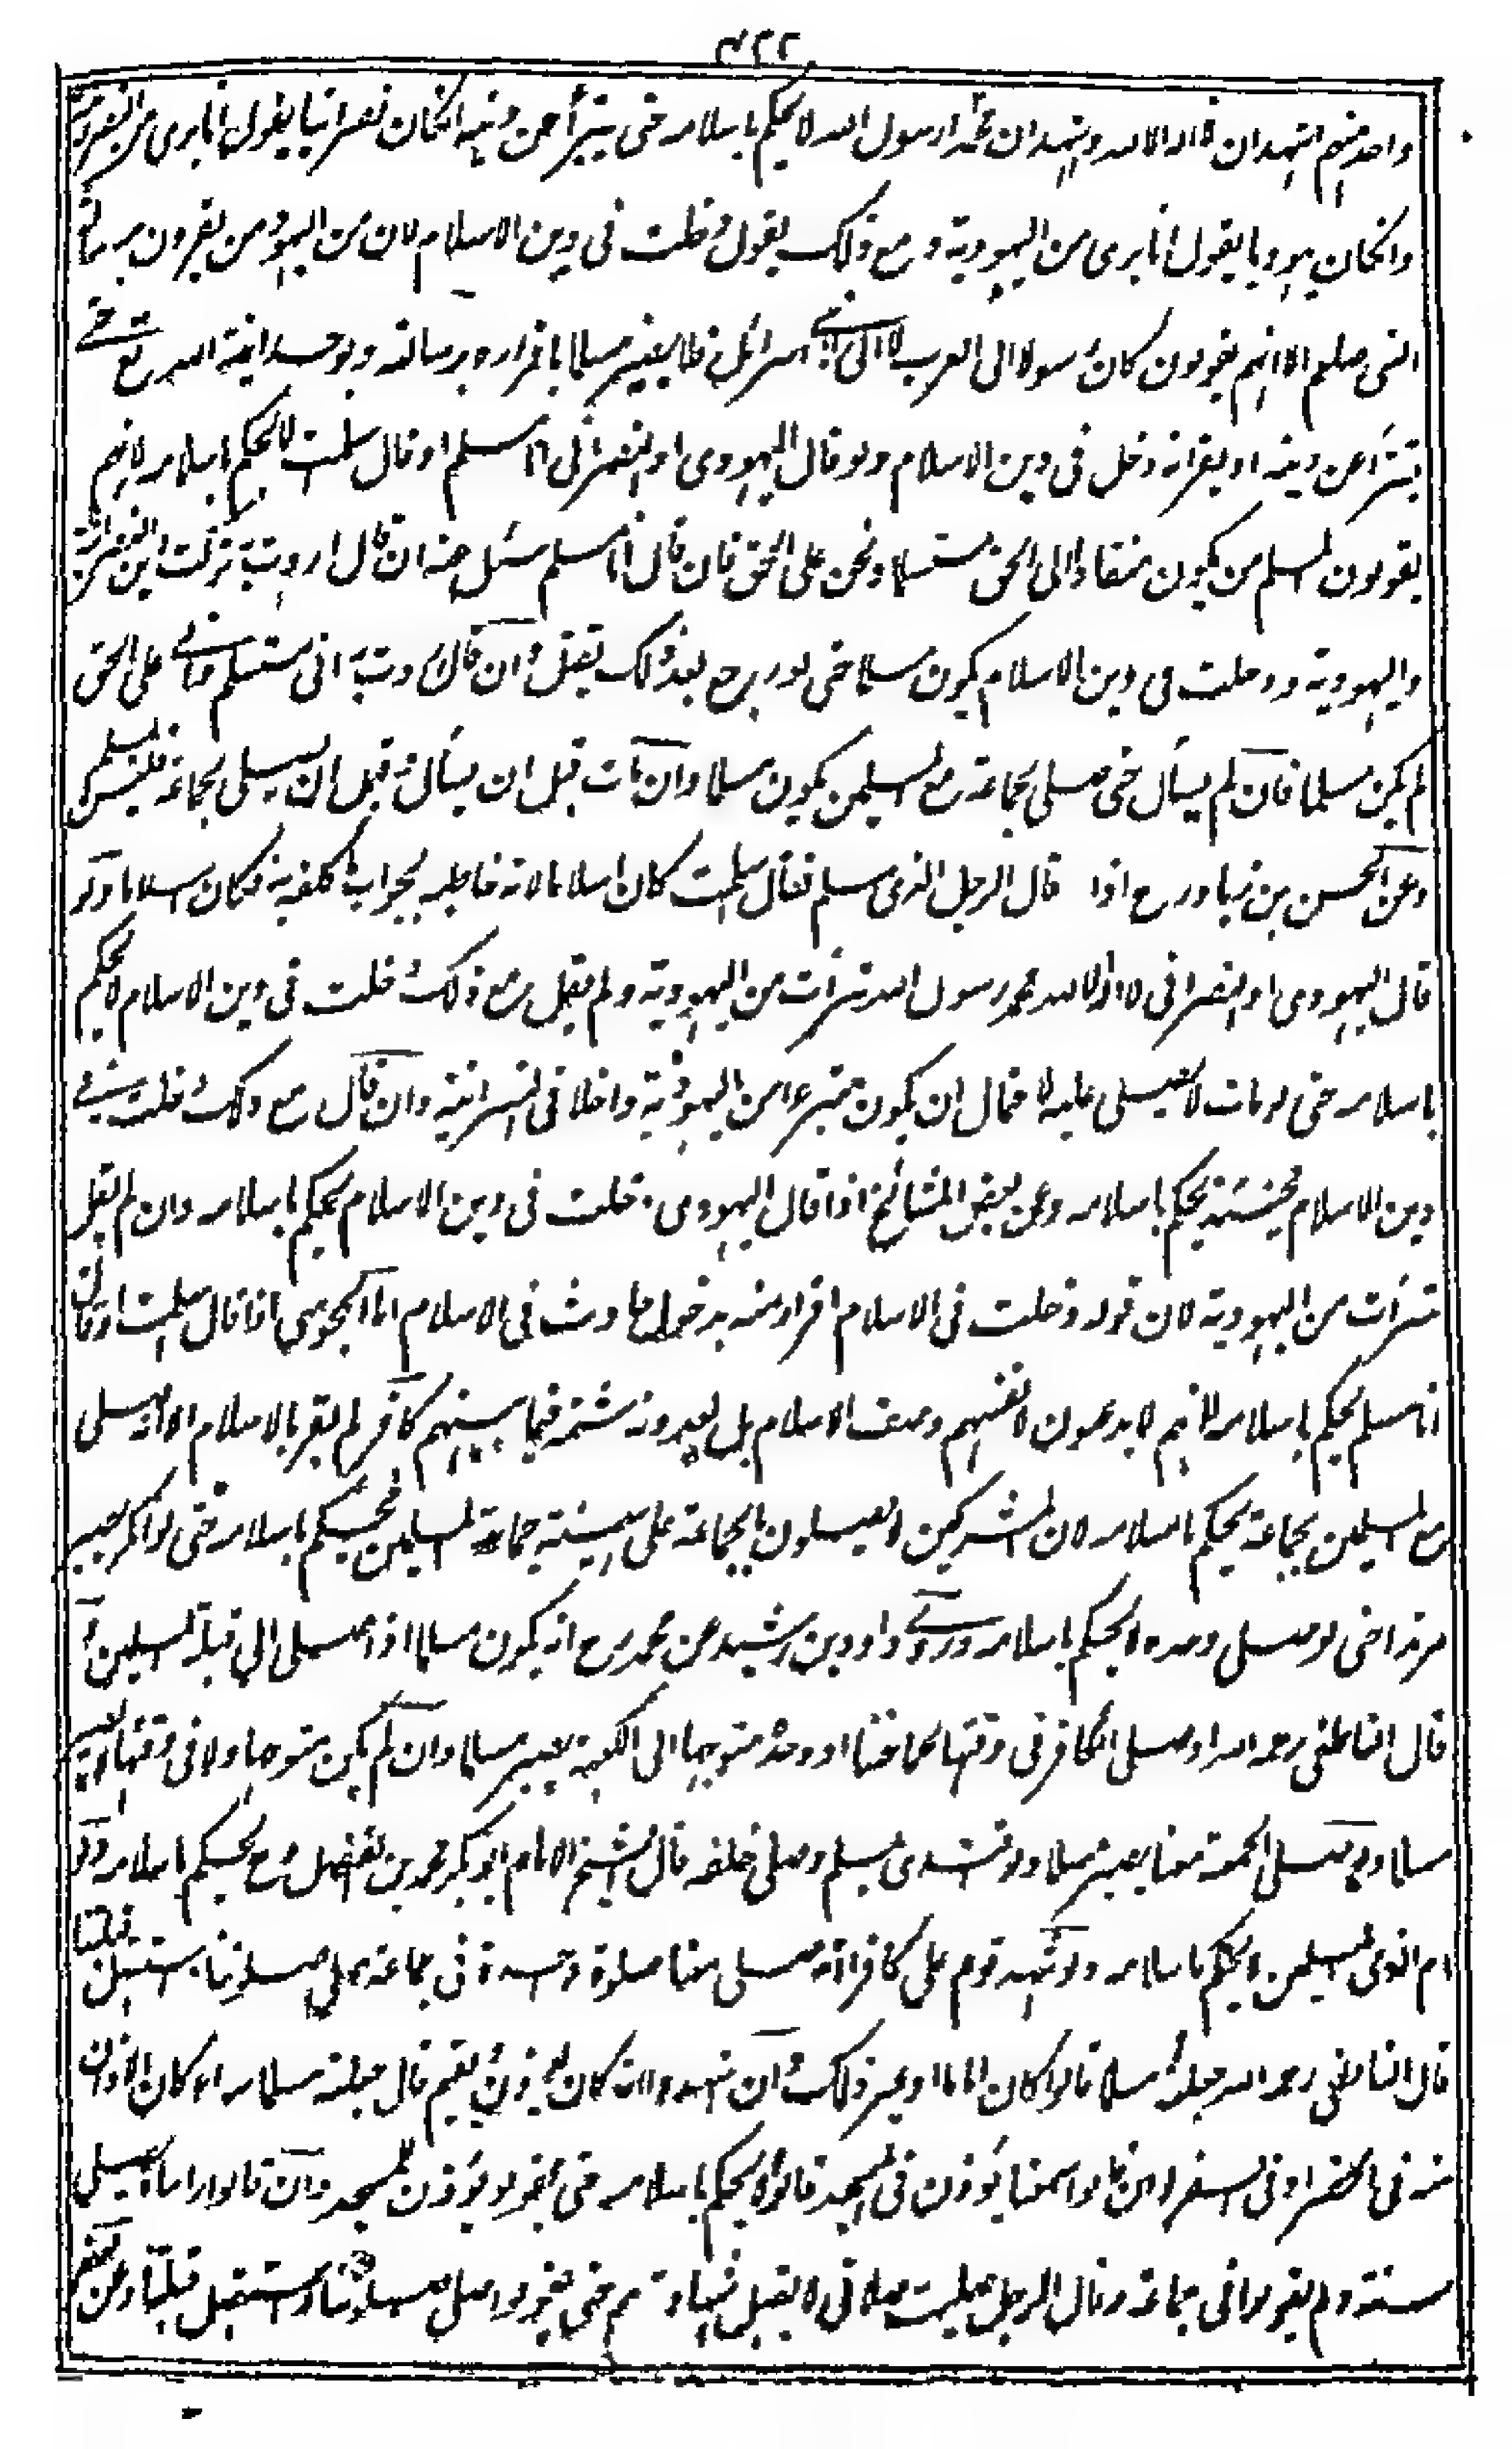 ٤٢٢
واحد منهم اشهد ان لا اله الا الله واشهد ان محمدا رسول الله لا يحكم باسلامه حتى يتبرأ عن دينه انكان نصرانيا يقول انا برى من النصرانية
وانكان يهوديا يقول انا برى من اليهودية ومع ذلك يقول دخلت فى دين الاسلام لان من اليهود من يقرون برسالة
النبى صلعم الا انهم يقولون كان رسولا الى العرب لا الى بنى اسرائيل فلا يصير مسلما باقراره برسالته وبوحدانية الله تع حتى
يتبرأ عن دينه او يقر انه دخل فى دين الاسلام ولو قال اليهودى او النصرانى انا مسلم او قال اسلمت لا يحكم باسلامه لانهم
يقولون المسلم من يكون منقادا الى الحق مستسلما ونحن على الحق فان قال انا مسلم سئل عنه ان قال اردت به تركت دين النصرانية
واليهودية ودخلت فى دين الاسلام يكون مسلما حتى لو رجع بعد ذلك يقتل وان قال اردت به انى مستسلم وانى على الحق
لم يكن مسلما فان لم يسأل حتى صلى بجماعة مع المسلمين يكون مسلما وان مات قبل ان يسأل وقبل ان يصلى بجماعة فليس بمسلم
وعن الحسن بن زياد رح اذا قال الرجل الذمى اسلم فقال اسلمت كان اسلاما لانه خاطبه بجواب ما كلفه به فكان اسلاما ولو
قال اليهودى او النصرانى لا اله الا الله محمد رسول الله تبرأت من اليهودية ولم يقل مع ذلك دخلت فى دين الاسلام لا يحكم
باسلامه حتى لو مات لا يصلى عليه لاحتمال ان يكون متبرءا من اليهودية داخلا فى النصرانية وان قال مع ذلك دخلت فى
دين الاسلام فحينئذ يحكم باسلامه وعن بعض المشائخ اذا قال اليهودى دخلت فى دين الاسلام يحكم باسلامه وان لم يقل
تبرأت من اليهودية لان قوله دخلت فى الاسلام اقرار منه بدخول حادث فى الاسلام اما المجوسى اذا قال اسلمت او قال
انا مسلم يحكم باسلامه لانهم لا يدعون لانفسهم وصف الاسلام بل يعدونه شتمة فيما بينهم كافر لم يقر بالاسلام الا انه صلى
مع المسلمين بجماعة يحكم باسلامه لان المشركين لا يصلون بالجماعة على هيئة جماعة المسلمين فيحكم باسلامه حتى لو انكر يصير
مرتدا حتى لو صلى وحده لا يحكم باسلامه وروى داود بن رشيد عن محمد رح انه يكون مسلما اذا صلى الى قبلة المسلمين
قال الناطفى رحمه الله اذا صلى الكافر فى وقتها بجماعتنا او وحده متوجها الى الكعبة يصير مسلما وان لم يكن متوجها ولا فى وقتها لا يصير
مسلما ولو صلى الجمعة معنا يصير مسلما ولو اقتدى بمسلم وصلى خلفه قال الشيخ الامام ابو بكر محمد بن الفضل رح يحكم باسلامه ولو
ام الذمى المسلمين لا يحكم باسلامه ولو شهد قوم على كافر انه صلى معنا صلوة واحدة فى جماعة على صلوتنا يستقبل قبلتنا
قال الناطفى رحمه الله جعلته مسلما قالوا كان اماما او غير ذلك وان شهدوا انه كان يؤذن ويقيم قال جعلته مسلما سواء كان الاذان
منه فى الحضر او فى السفر وان قالوا سمعنا يؤذن فى المسجد قالوا لا يحكم باسلامه حتى يقولوا يؤذن للمسجد وان قالوا رأيناه يصلى
سنة ولم يقولوا فى جماعة وقال الرجل صليت صلاتى لا يقبل شهادتهم حتى يقولوا صلى صلوتنا واستقبل قبلتنا وعن بعضهم